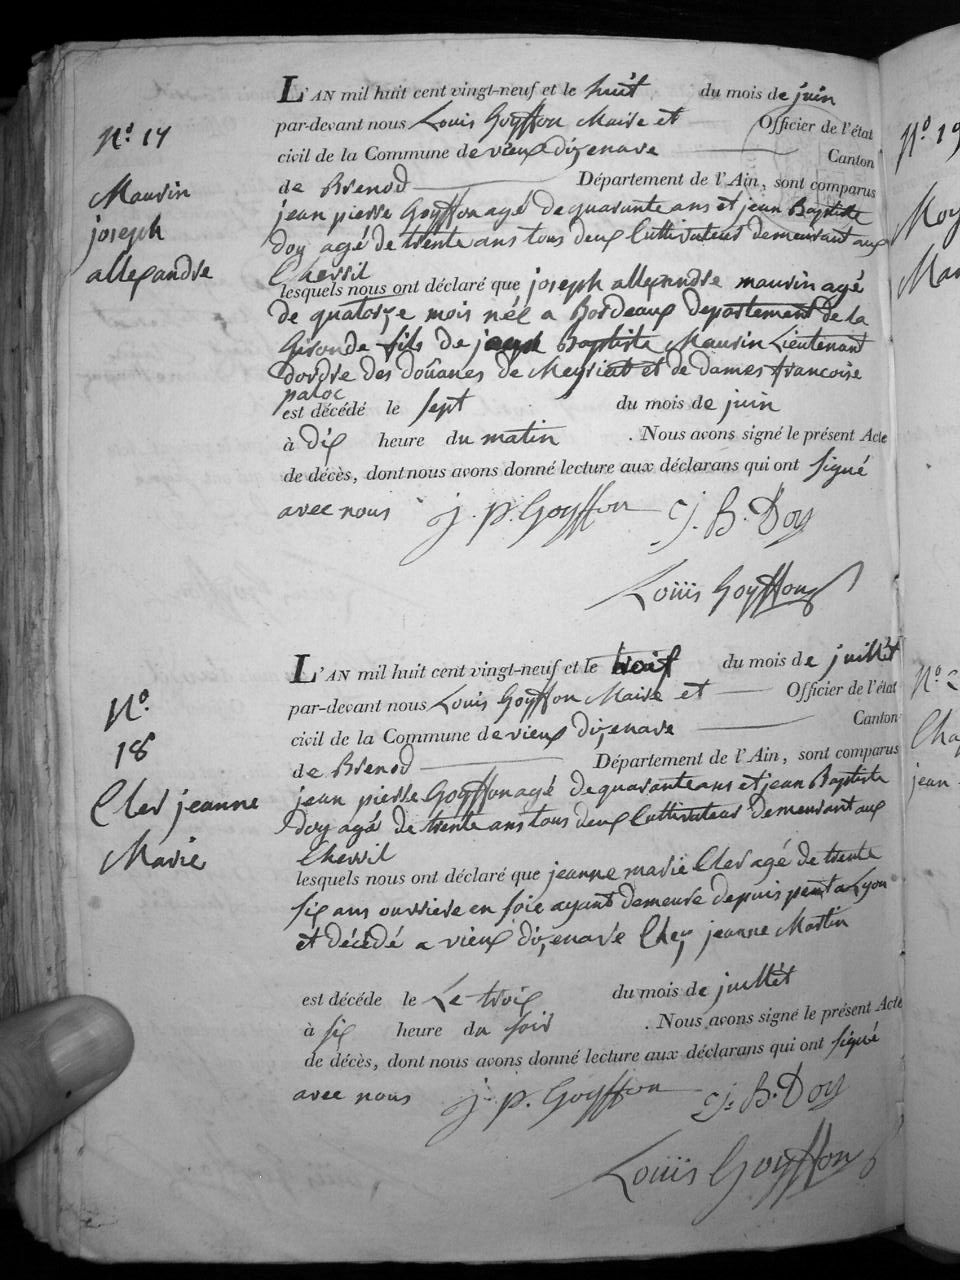 N.º 17
Maurin
joseph
allexandre
L'AN mil huit cent vingt-neuf et le huit du mois de juin
par-devant nous Louis Goyffon Maire et Officier de l'état
civil de la Commune de vieux dizenave Canton
de Brenod Département de l'Ain, sont comparus
jean pierre Goyffon agé de quarante ans et jean Baptiste
doy agé de trente ans tous deux Cultivateur demeurant aux
Cherril
lesquels nous ont déclaré que joseph allexandre maurin agé
de quatorze mois néé a Bordeaux departement de la
Gironde fils de Baptiste Maurin Lieutenant
dordre des doûanes de Meyriat et de dames francoise
paloc
est décédé le sept du mois de juin
à dix heure du matin . Nous avons signé le présent Acte
de décès, dont nous avons donné lecture aux déclarans qui ont signé
avec nous J. p. Goyffon J. B. Doy
Louis Goyffon
N.º
18
Cler jeanne
Marie
L'AN mil huit cent vingt-neuf et le du mois de juillet
par-devant nous Louis Goyffon Maire et Officier de l'état
civil de la Commune de vieux dizenave Canton
de Brenod Département de l'Ain, sont comparus
jean pierre Goyffon agé de quarante ans et jean Baptiste
doy agé de trente ans tous deux Cultivateur demeurant aux
Cherril
lesquels nous ont déclaré que jeanne marie Cler agé de trente
six ans ouvriere en soie ayant demeuré depuis peut a Lyon
et décédé a vieux dizenave Chez jeanne Martin
est décédé le Le trois du mois de juillet
à six heure du soir . Nous avons signé le présent Acte
de décès, dont nous avons donné lecture aux déclarans qui ont signé
avec nous J. p. Goyffon J. B. Doy
Louis Goyffon